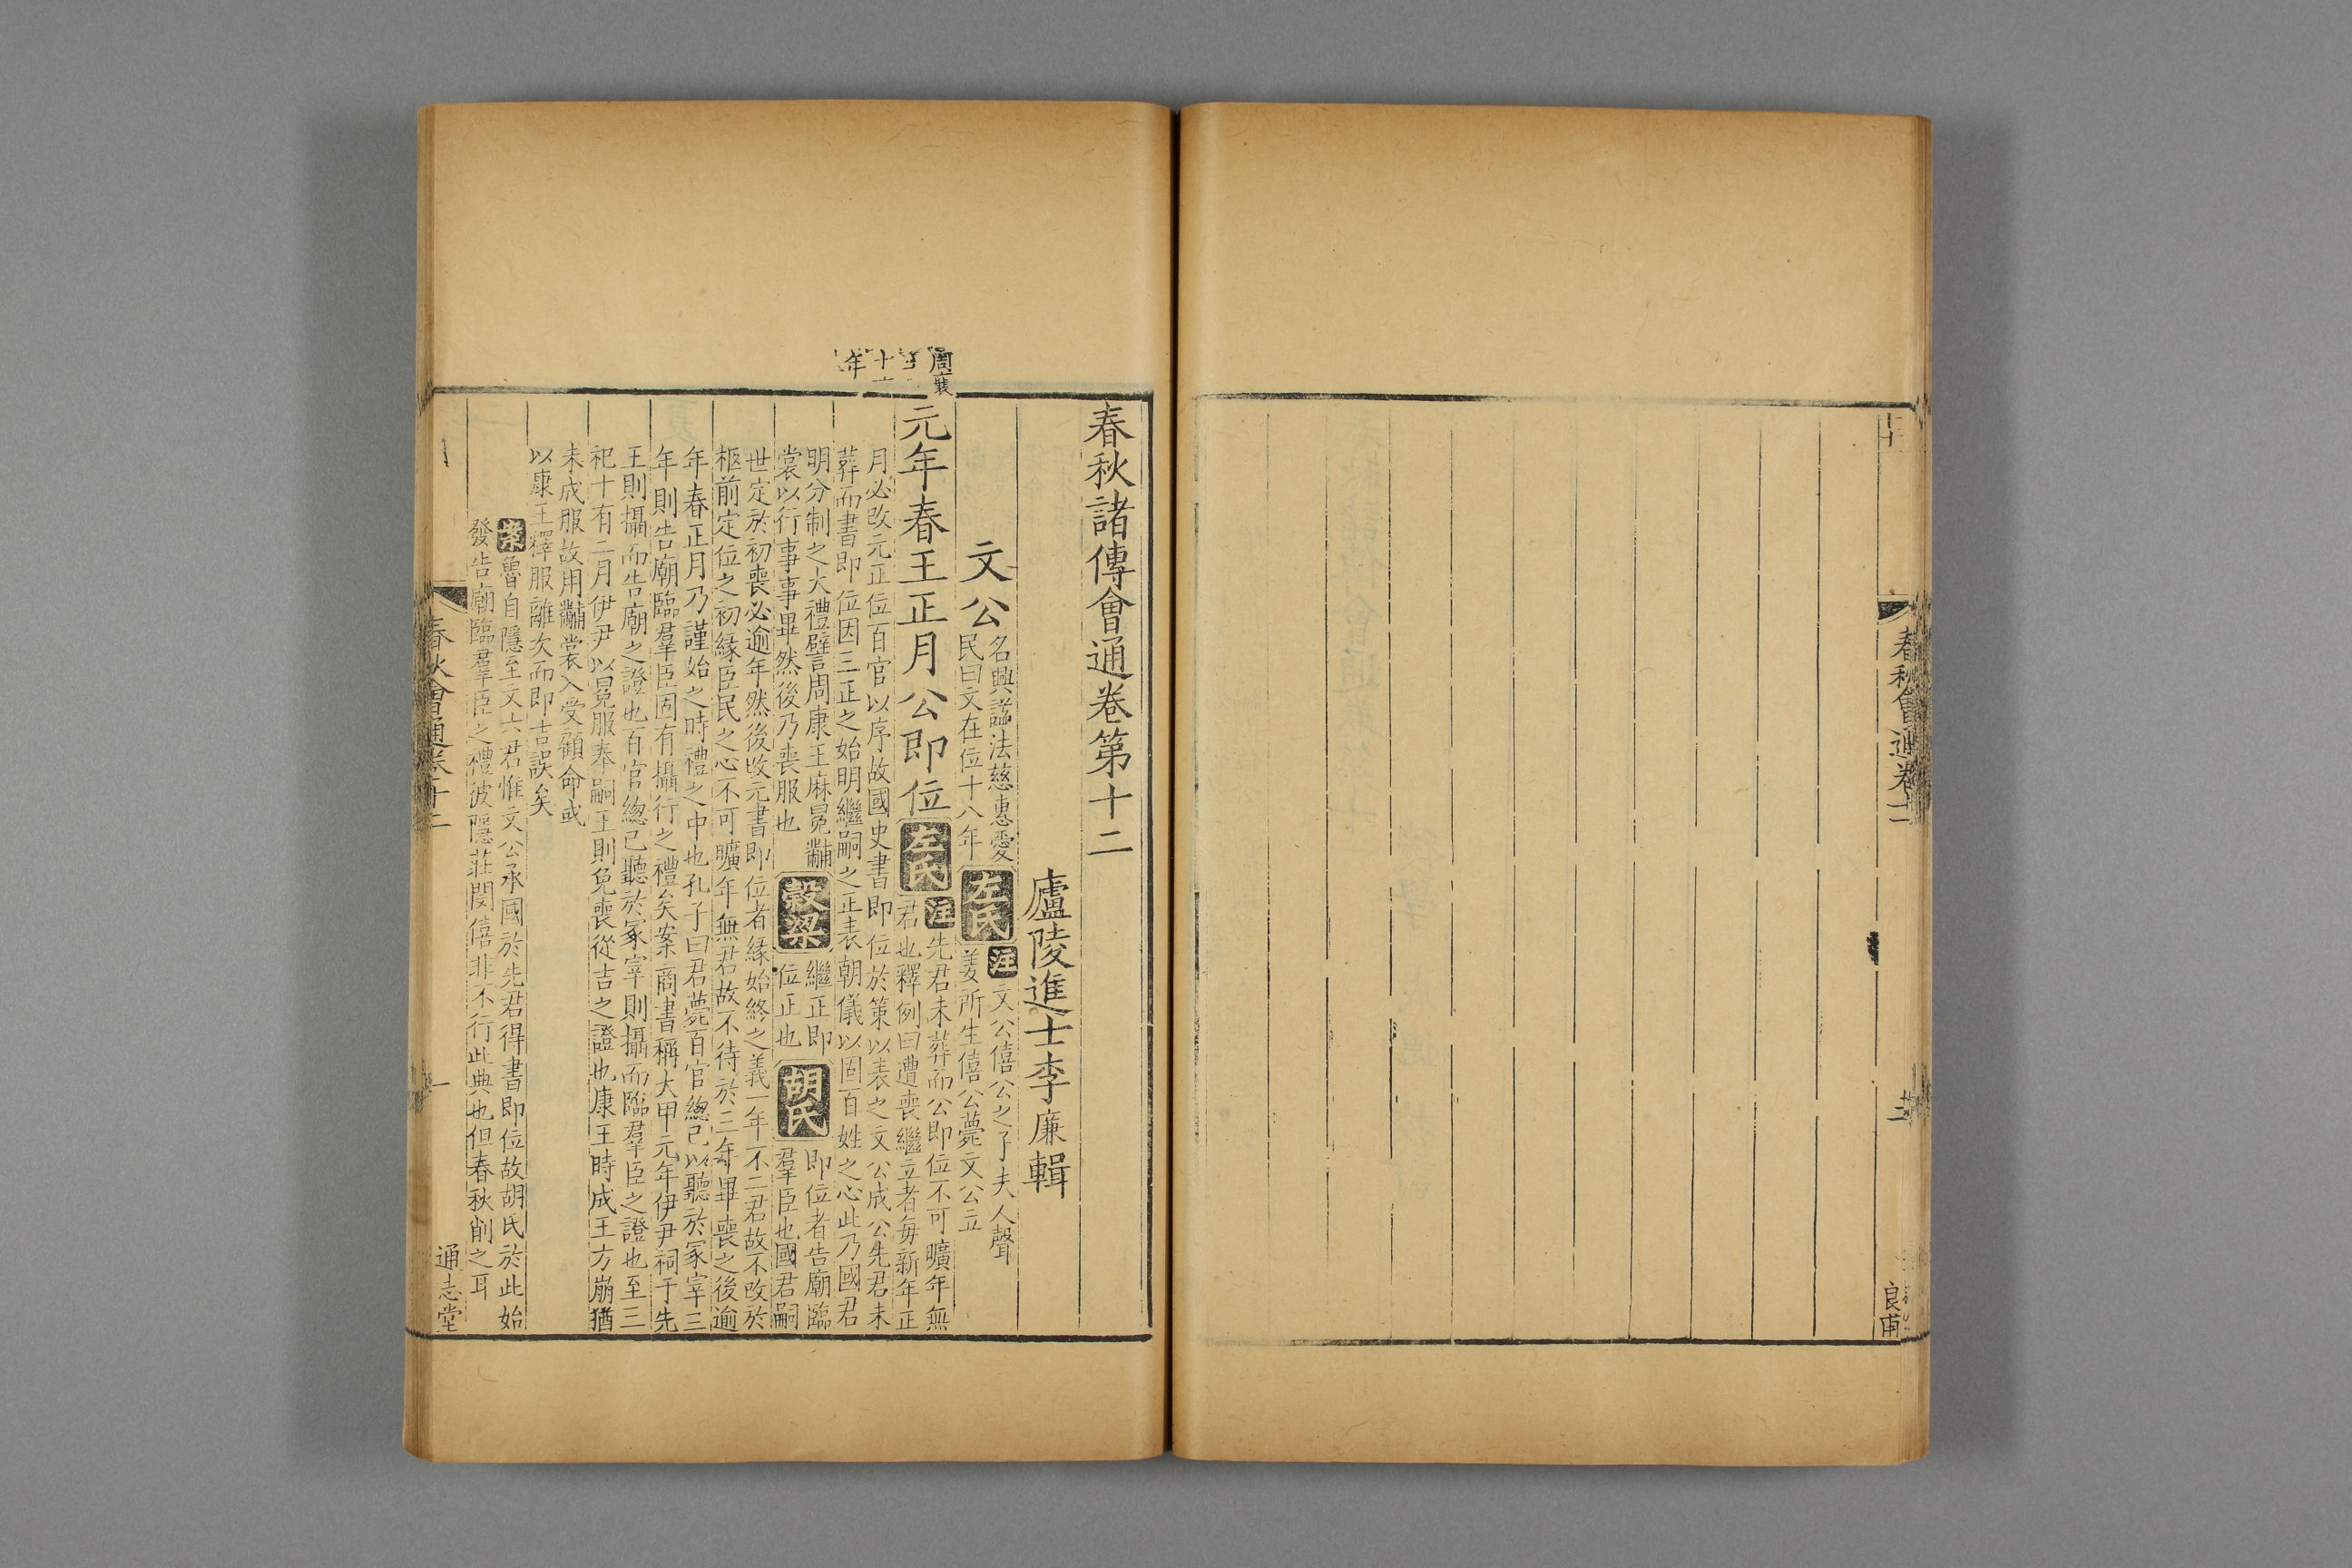 春秋會通卷十一
良甫
春秋諸傳會通卷第十二
廬陵進士李廉輯
文公
名興諡法慈惠愛
民曰文在位十八年
左氏
注
文公僖公之子夫人聲
姜所生僖公薨文公立
周襄
年
元年春王正月公即位
左氏
注
先君未葬而公即位不可曠年無
君也釋例曰遭喪繼立者每新年正
月必改元正位百官以序故國史書即位於策以表之文公成公先君未
葬而書即位因三正之始明繼嗣之正表朝儀以固百姓之心此乃國君
明分制之大禮譬周康王麻冕黼
裳以行事事畢然後乃喪服也
穀梁
繼正即
位正也
胡氏
即位者告廟臨
羣臣也國君嗣
世定於初喪必逾年然後改元書即位者緣始終之義一年不二君故不改於
柩前定位之初緣臣民之心不可曠年無君故不待於三年畢喪之後逾
年春正月乃謹始之時禮之中也孔子曰君薨百官總己以聽於冢宰三
年則告廟臨羣臣固有攝行之禮矣案商書稱大甲元年伊尹祠于先
王則攝而告廟之證也百官總己聽於冢宰則攝而臨羣臣之證也至三
祀十有二月伊尹以冕服奉嗣王則免喪從吉之證也康王時成王方崩猶
未成服故用黼裳入受顧命或
以康王釋服離次而即吉誤矣
案
魯自隱至文六君惟文公承國於先君得書即位故胡氏於此始
發告廟臨羣臣之禮彼隱莊閔僖非不行此典也但春秋削之耳
春秋會通卷十二
一
通志堂